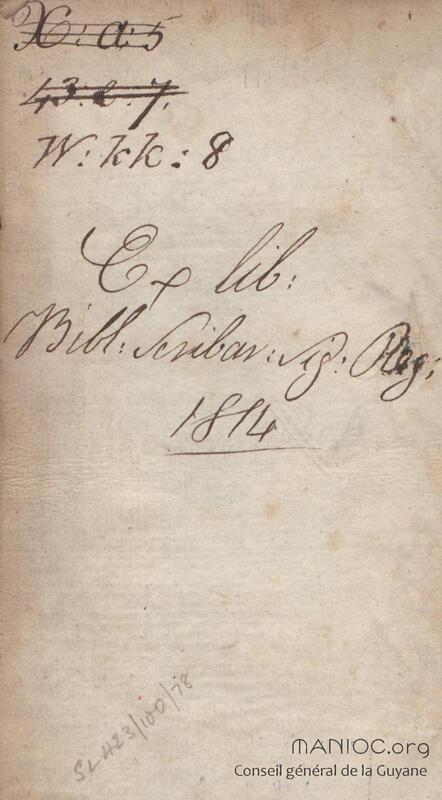 X: a: 5
43. e. 7.
W: kk: 8
Ex lib:
Bibl: Scribar: Sig: Reg:
1814
SL 423/100/78
MANIOC.org
Conseil général de la Guyane